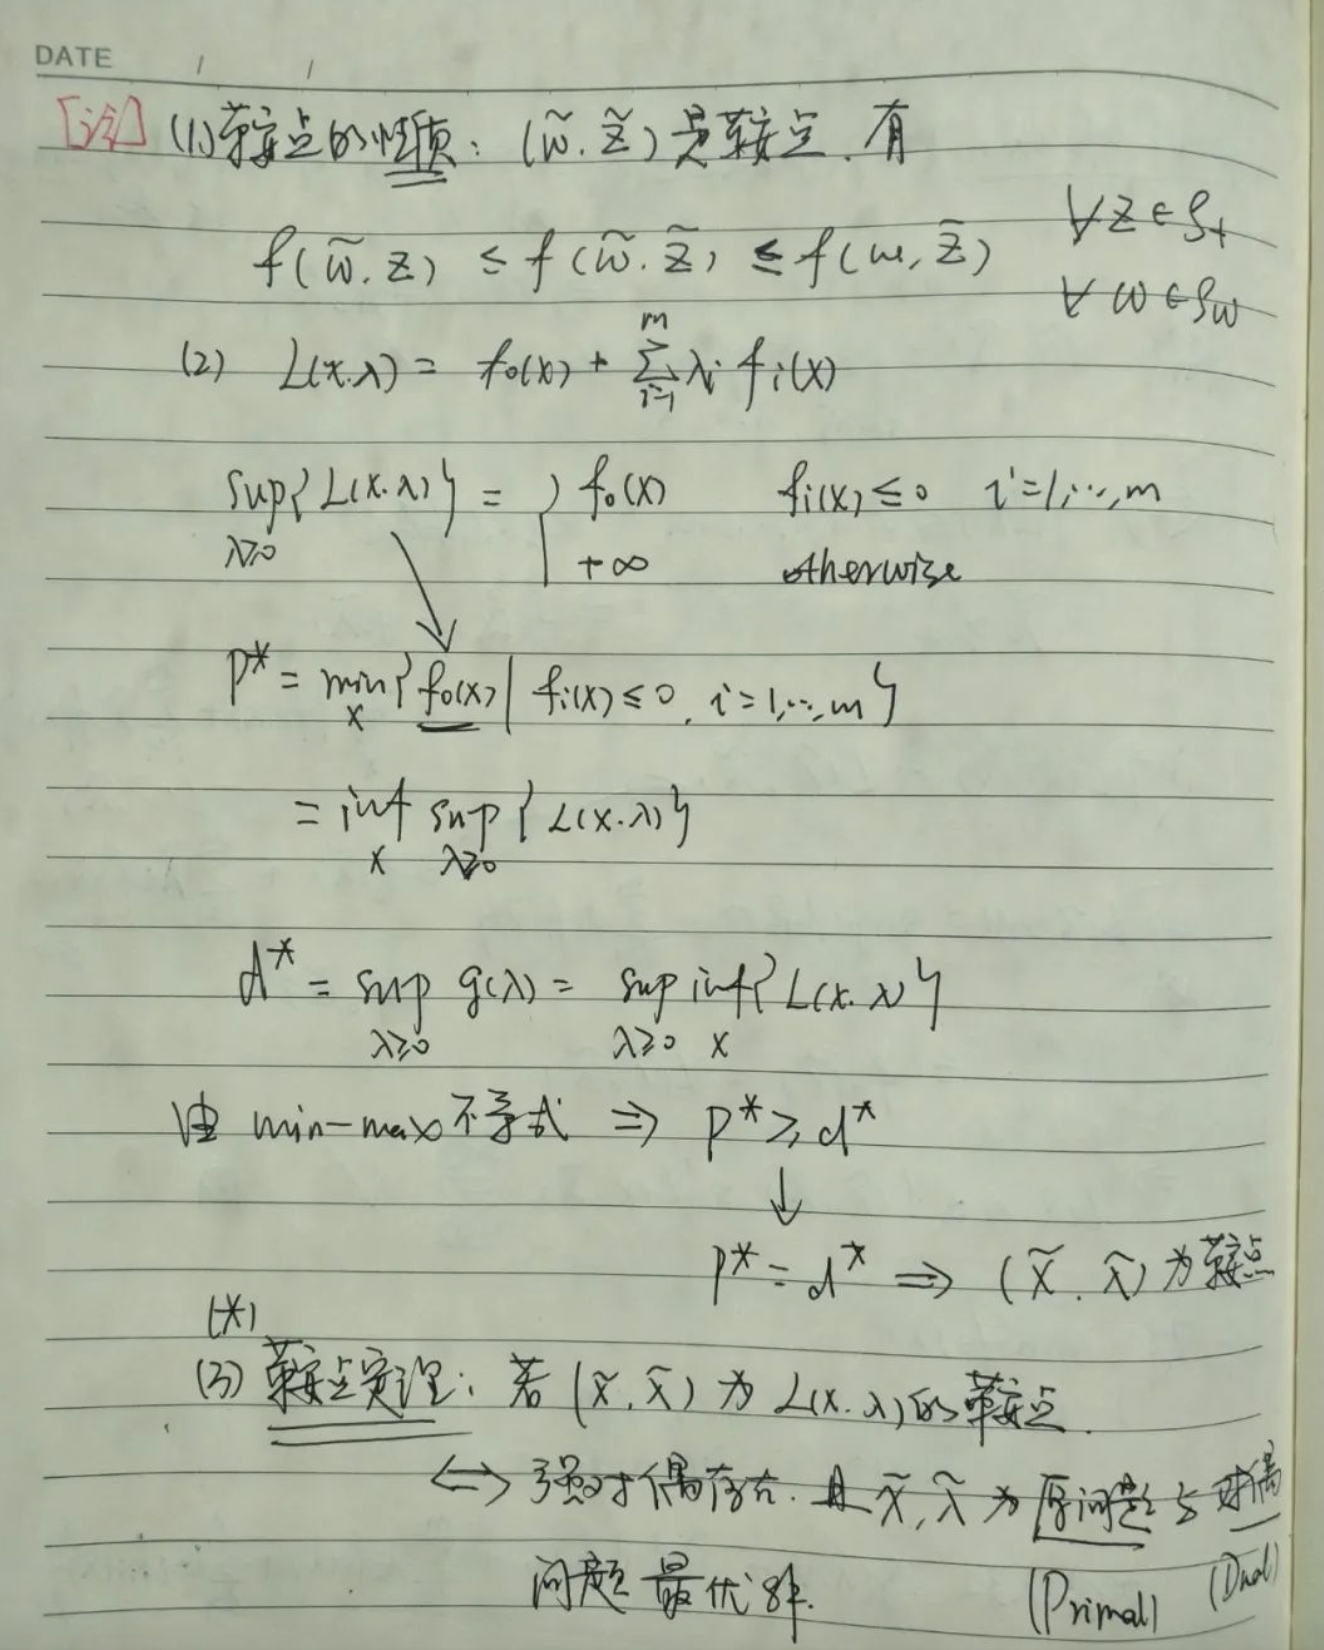 DATE / /
[注] (1) 鞍点的性质: (w̃. z̃) 是鞍点. 有
f(w̃. z) ≤ f(w̃. z̃) ≤ f(w, z̃) ∀z∈S_z
∀w∈S_w
(2) L(x.λ) = f₀(x) + ∑_{i=1}^{m} λᵢ fᵢ(x)
sup{L(x.λ)} = { f₀(x) fᵢ(x) ≤ 0 i=1,…,m
λ≥0 +∞ otherwise
p* = min{f₀(x) | fᵢ(x) ≤ 0. i=1,…,m}
x
= inf sup{L(x.λ)}
x λ≥0
d* = sup g(λ) = sup inf{L(x.λ)}
λ≥0 λ≥0 x
由 min-max 不等式 ⇒ p* ≥ d*
↓
p* = d* ⇒ (x̃. λ̃) 为鞍点
(*)
(3) 鞍点定理: 若 (x̃. λ̃) 为 L(x.λ) 的鞍点.
⟺ 强对偶存在. 且 x̃, λ̃ 为 原问题 与 对偶
问题 最优解. (Primal) (Dual)